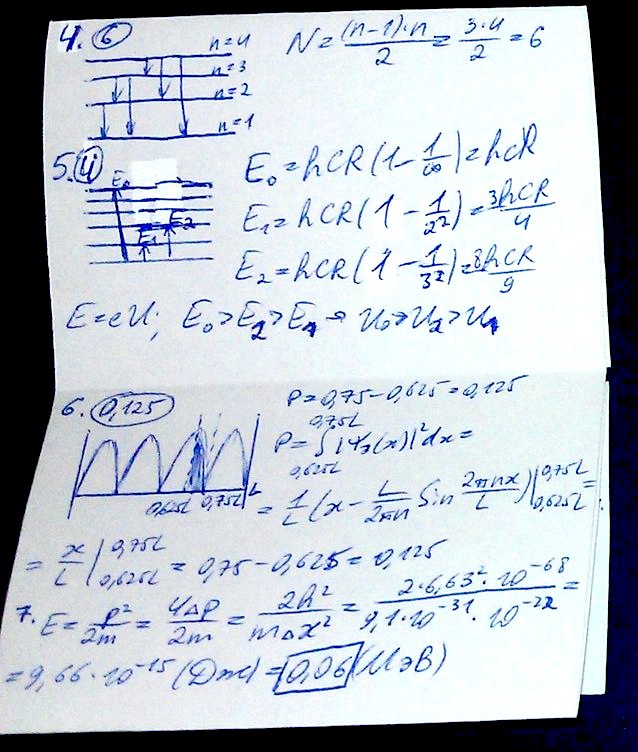 4. 6
n=4
n=3
n=2
n=1
N = (n-1)·n/2 = 3·4/2 = 6
5. 4
E₀
E₁
E₂
E₀ = hcR(1 - 1/∞) = hcR
E₁ = hcR(1 - 1/2²) = 3hcR/4
E₂ = hcR(1 - 1/3²) = 8hcR/9
E = eU; E₀ > E₂ > E₁ → U₀ > U₂ > U₁
6. 0,125
P = 0,75 - 0,625 = 0,125
P = ∫_{0,625L}^{0,75L} |Ψ₃(x)|² dx =
0,625L 0,75L L
= 1/L (x - L/2πn Sin 2πnx/L) |_{0,625L}^{0,75L} =
= x/L |_{0,625L}^{0,75L} = 0,75 - 0,625 = 0,125
7. E = p²/2m = 4Δp/2m = 2h²/mΔx² = 2·6,63²·10⁻⁶⁸/9,1·10⁻³¹·10⁻²² =
= 9,66·10⁻¹⁵ (Дж) = 0,06 (МэВ)